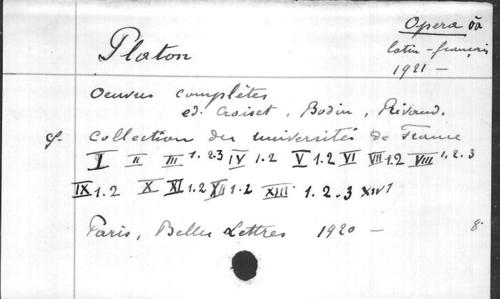 Opera
Platon
latin-français
1921 -
Oeuvres complètes
ed. Croiset, Bodin, Rivaud.
cf. Collection des universités de France
I II III 1.2.3 IV 1.2 V 1.2 VI VII 1.2 VIII 1.2.3
IX 1.2 X XI 1.2 XII 1.2 XIII 1.2.3 XIV 1
Paris, Belles Lettres 1920 - 8.